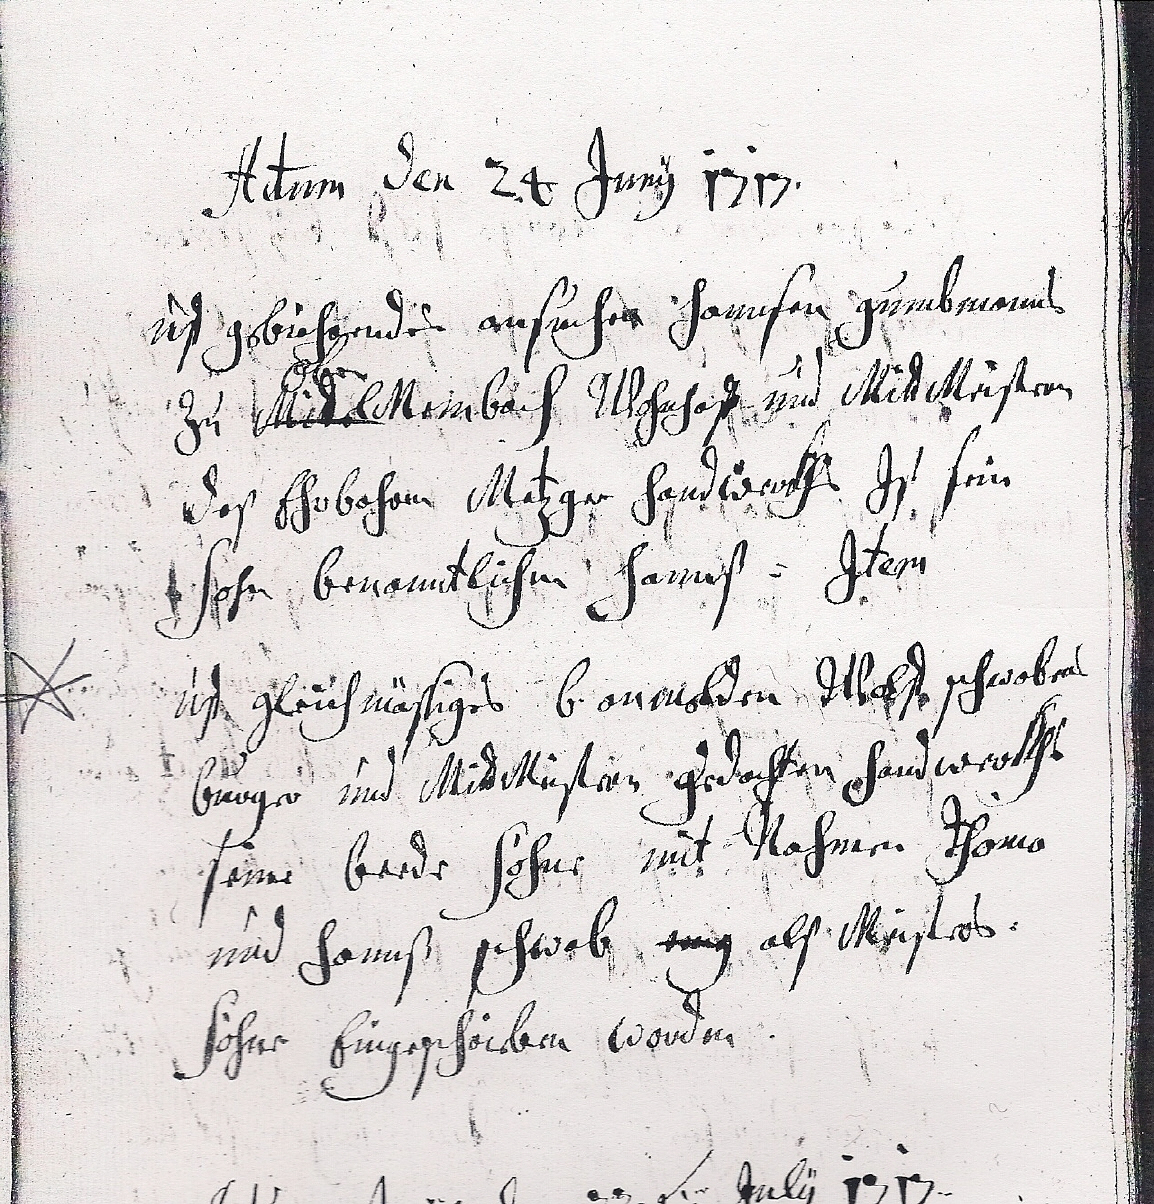 Actum den 24 Juny 1717.
uf gebührendes ansuchen Hannsen gumbmanns
Ober
zu Mittel Membach Wohnhaft und MittMeistern
deß Ehrbahren Metzger Handwerkhs Ist sein
Sohn benanntlichen Hannß = Item
uf gleichmäßiges anmelden Wolf schwaben
burger und MittMeistern gedachten Handwerkhs
seine beede Söhne mit Nahmen Thoma
und Hannß schwab als Meisters:
Söhne Eingeschrieben worden.
July 1717.